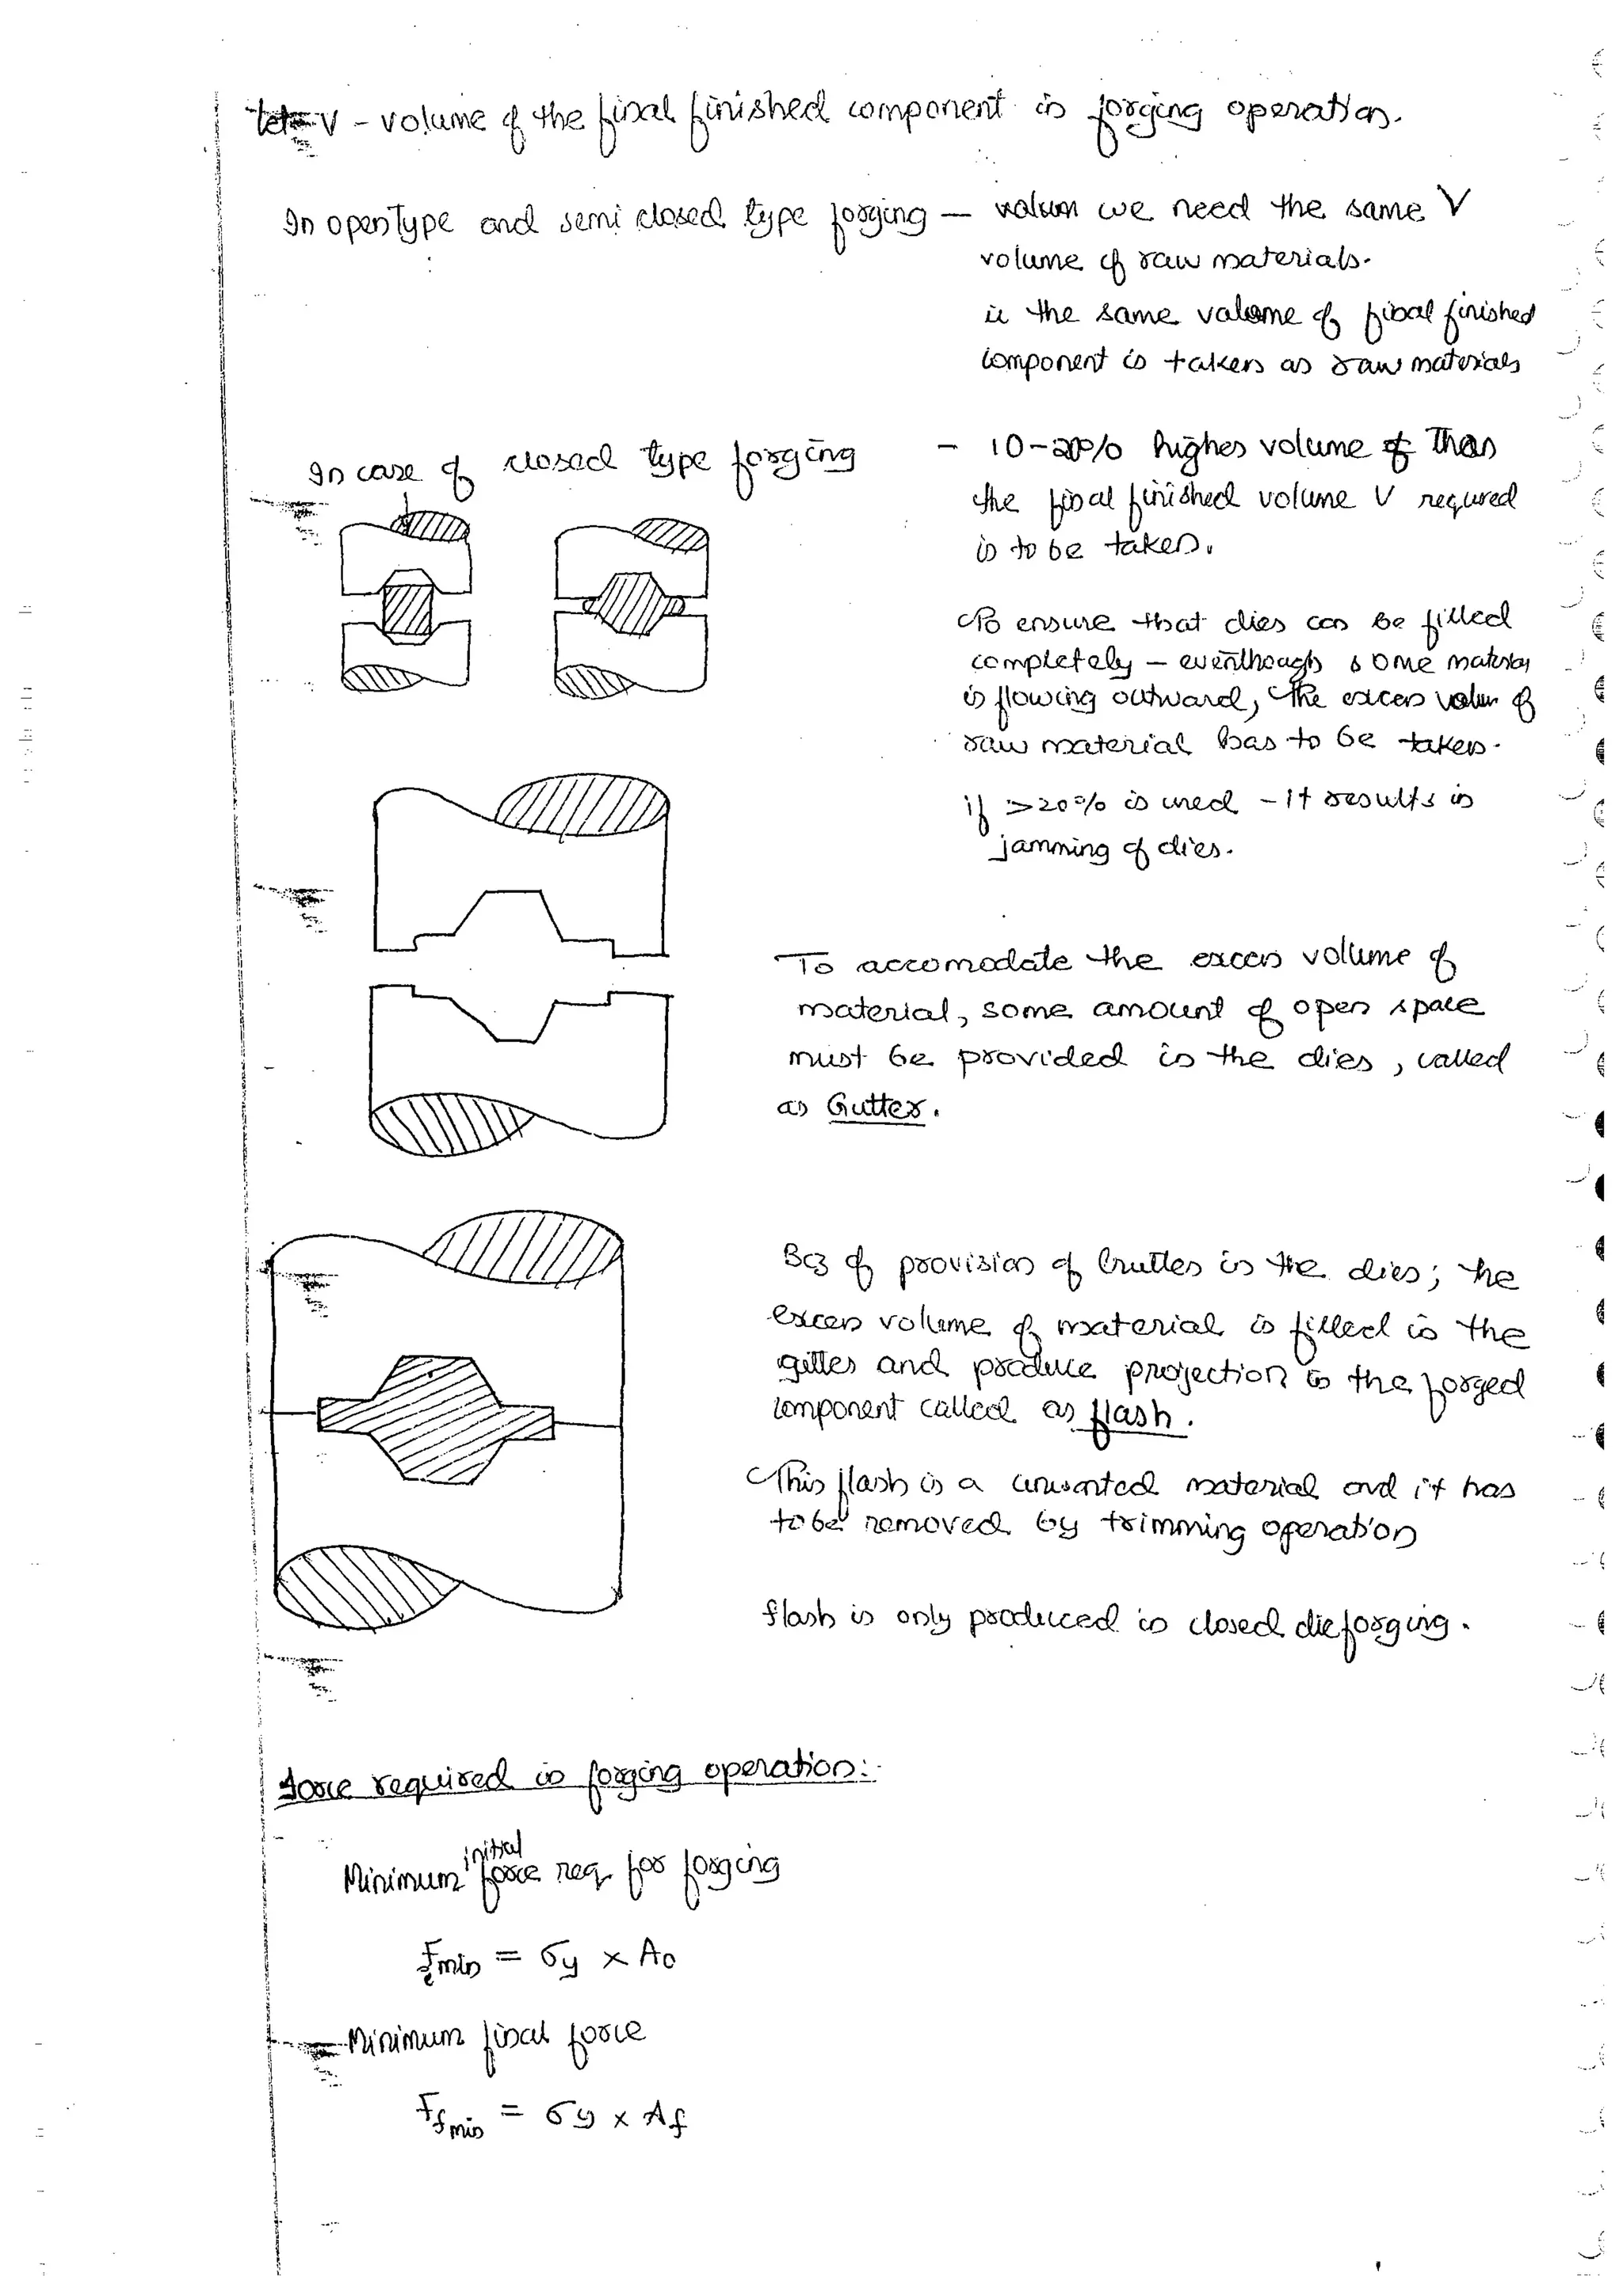 let V - volume of the final finished component in forging operation.
In open Type and semi closed type forging — we need the same V
volume of raw materials.
ie the same volume of final finished
component is taken as raw materials
In case of closed type forging - 10-20% higher volume of than
the final finished volume V requred
is to be taken.
To ensure that dies can be filled
completely - eventhough some material
is flowing outward, the excess volum of
raw material has to be taken.
if >20% is used - it results in
jamming of dies.
To accomodate the excess volume of
material, some amount of open space
must be provided in the dies, called
as Gutter.
Bcz of provision of Gutter in the dies; the
excess volume of material is filled in the
gutter and produce projection in the forged
component called as flash.
This flash is a unwanted material and it has
to be removed by trimming operation
flash is only produced in closed die forging.
Force required in forging operation:-
Minimum initial force req for forging
Fimin = σy × A0
Minimum final force
Ffmin = σy × Af